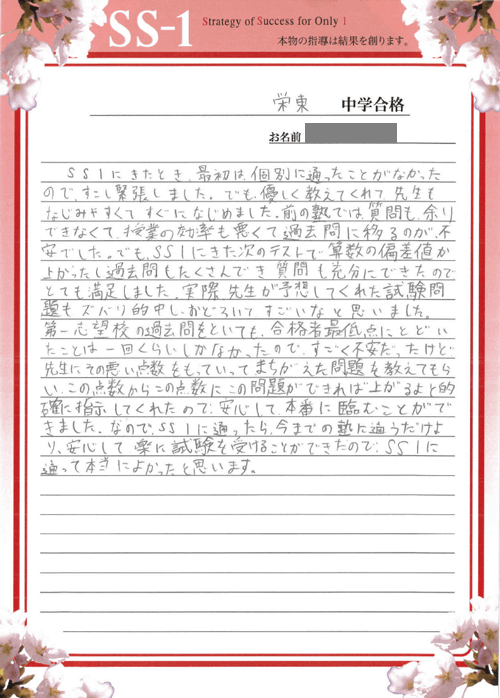 SS-1
Strategy of Success for Only 1
本物の指導は結果を創ります。
栄東 中学合格
お名前
SS1にきたとき、最初は、個別に通ったことがなかった
ので、すこし緊張しました。でも、優しく教えてくれて、先生も
なじみやすくて すぐになじめました。前の塾では 質問も、余り
できなくて、授業の効率も悪くて過去問に移るのが、不
安でした。でも、SS1にきた次のテストで、算数の偏差値が
上がったし過去問もたくさんでき 質問も充分にできたので
とても満足しました。実際、先生が予想してくれた試験問
題もズバリ的中し、おどろいて すごいなと 思いました。
第一志望校の過去問をといても、合格者最低点にとどい
たことは一回くらいしかなかったので、すごく不安だったけど、
先生にその悪い点数をもっていって まちがえた問題を教えてもら
い、この点数からこの点数に この問題ができれば上がるよと的
確に指示してくれたので、安心して、本番に臨むことがで
きました。なので、SS1に通ったら、今までの塾に通うだけよ
り、安心して 楽に試験を受けることができたので、SS1に
通って本当によかったと思います。